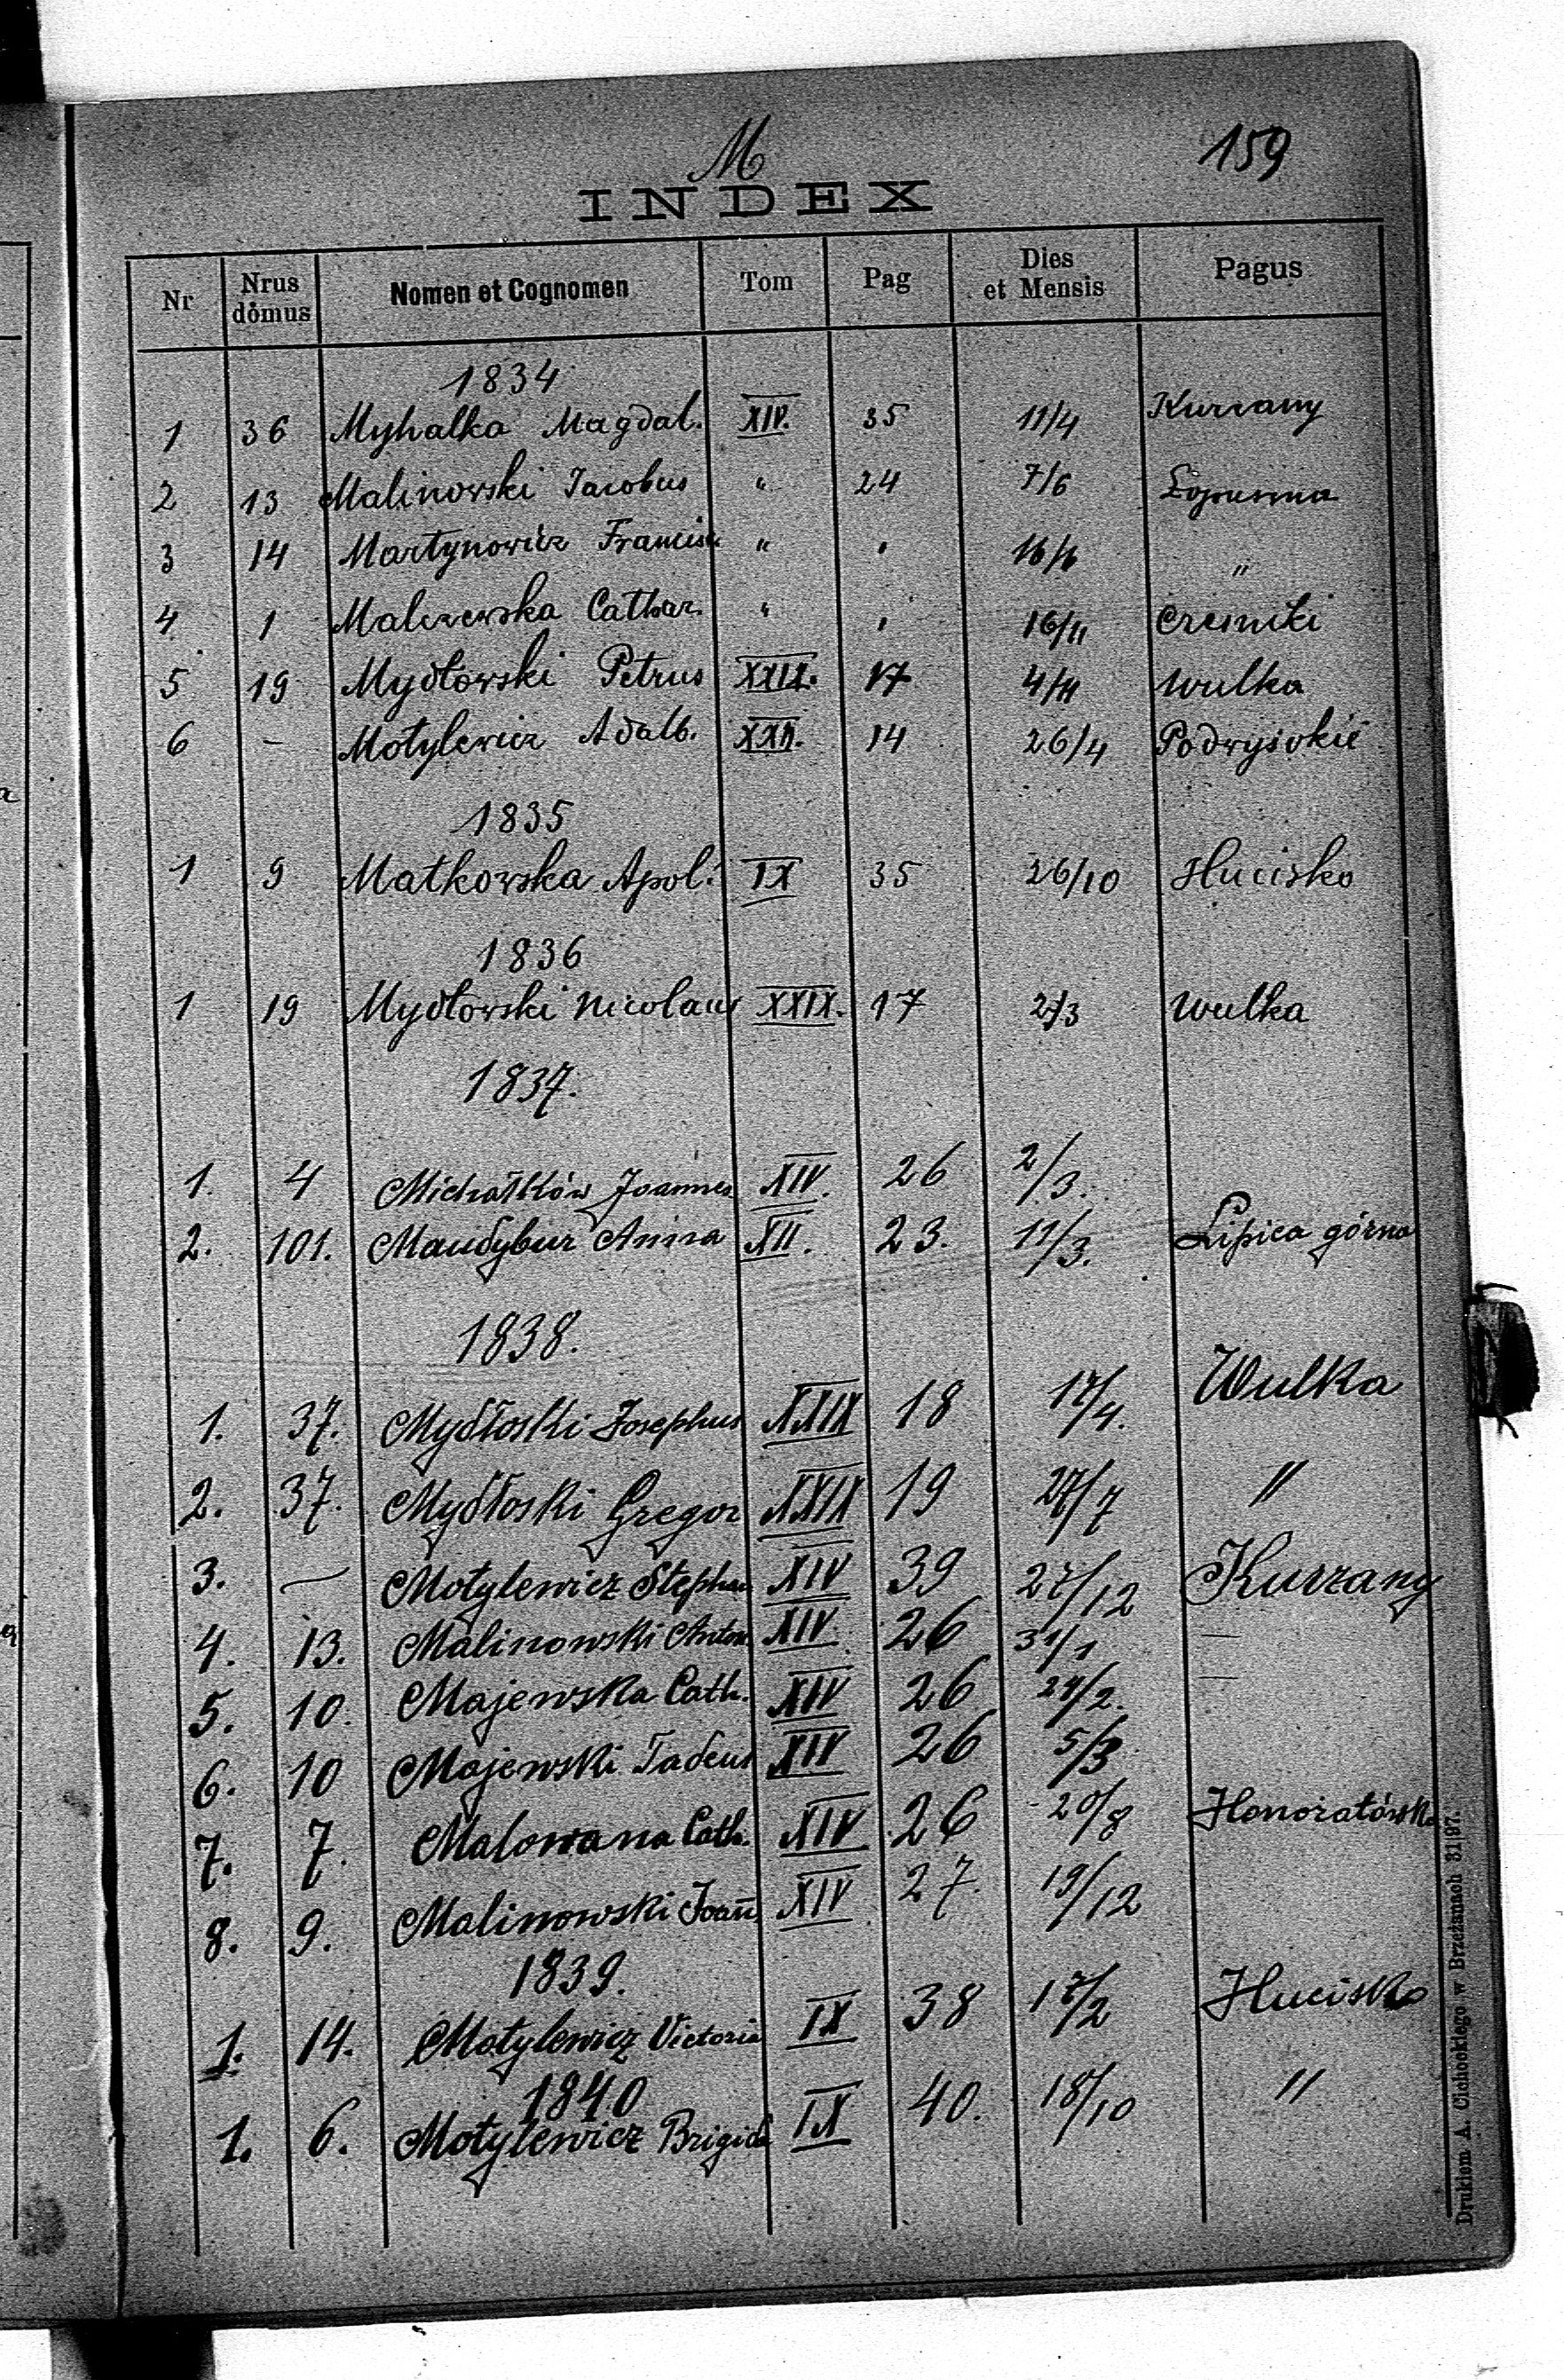 M
159
INDEX
Nr Nrus domus Nomen et Cognomen Tom Pag Dies et Mensis Pagus
1834
1 36 Myhalka Magdal. XIV. 35 11/4 Kurzany
2 13 Malinowski Jacobus " 24 7/6 Łopuszna
3 14 Martynowicz Francisc " " 16/6 "
4 1 Malczewska Cathar. " " 16/11 Czesniki
5 19 Mydłowski Petrus XXIX. 17 4/11 Wulka
6 – Motylewicz Adalb. XXII. 14 26/4 Podwysokie
1835
1 9 Matkowska Apol. IX 35 26/10 Hucisko
1836
1 19 Mydłowski Nicolaus XXIX. 17 2/3 Wulka
1837.
1. 4 Michałków Joannes XIV. 26 2/3.
2. 101. Mandybur Anna XII. 23. 11/3. Lipica górna
1838.
1. 37. Mydłoski Josephus XXIX 18 17/4. Wulka
2. 37. Mydłoski Gregor XXIX 19 27/7 "
3. — Motylewicz Stephan XIV 39 27/12 Kurzany
4. 13. Malinowski Anton. XIV. 26 31/1 —
5. 10. Majewska Cath. XIV 26 24/2. —
6. 10 Majewski Tadeus XIV 26 5/3
7. 7. Malowana Cath. XIV 26 20/8 Honoratówka
8. 9. Malinowski Joan̄. XIV 27. 19/12
1839.
1. 14. Motylewicz Victoria IX 38 17/2 Hucisko
1840
1. 6. Motylewicz Brigida IX 40. 18/10 "
Drukiem A. Cichockiego w Brzeżanach 3197.